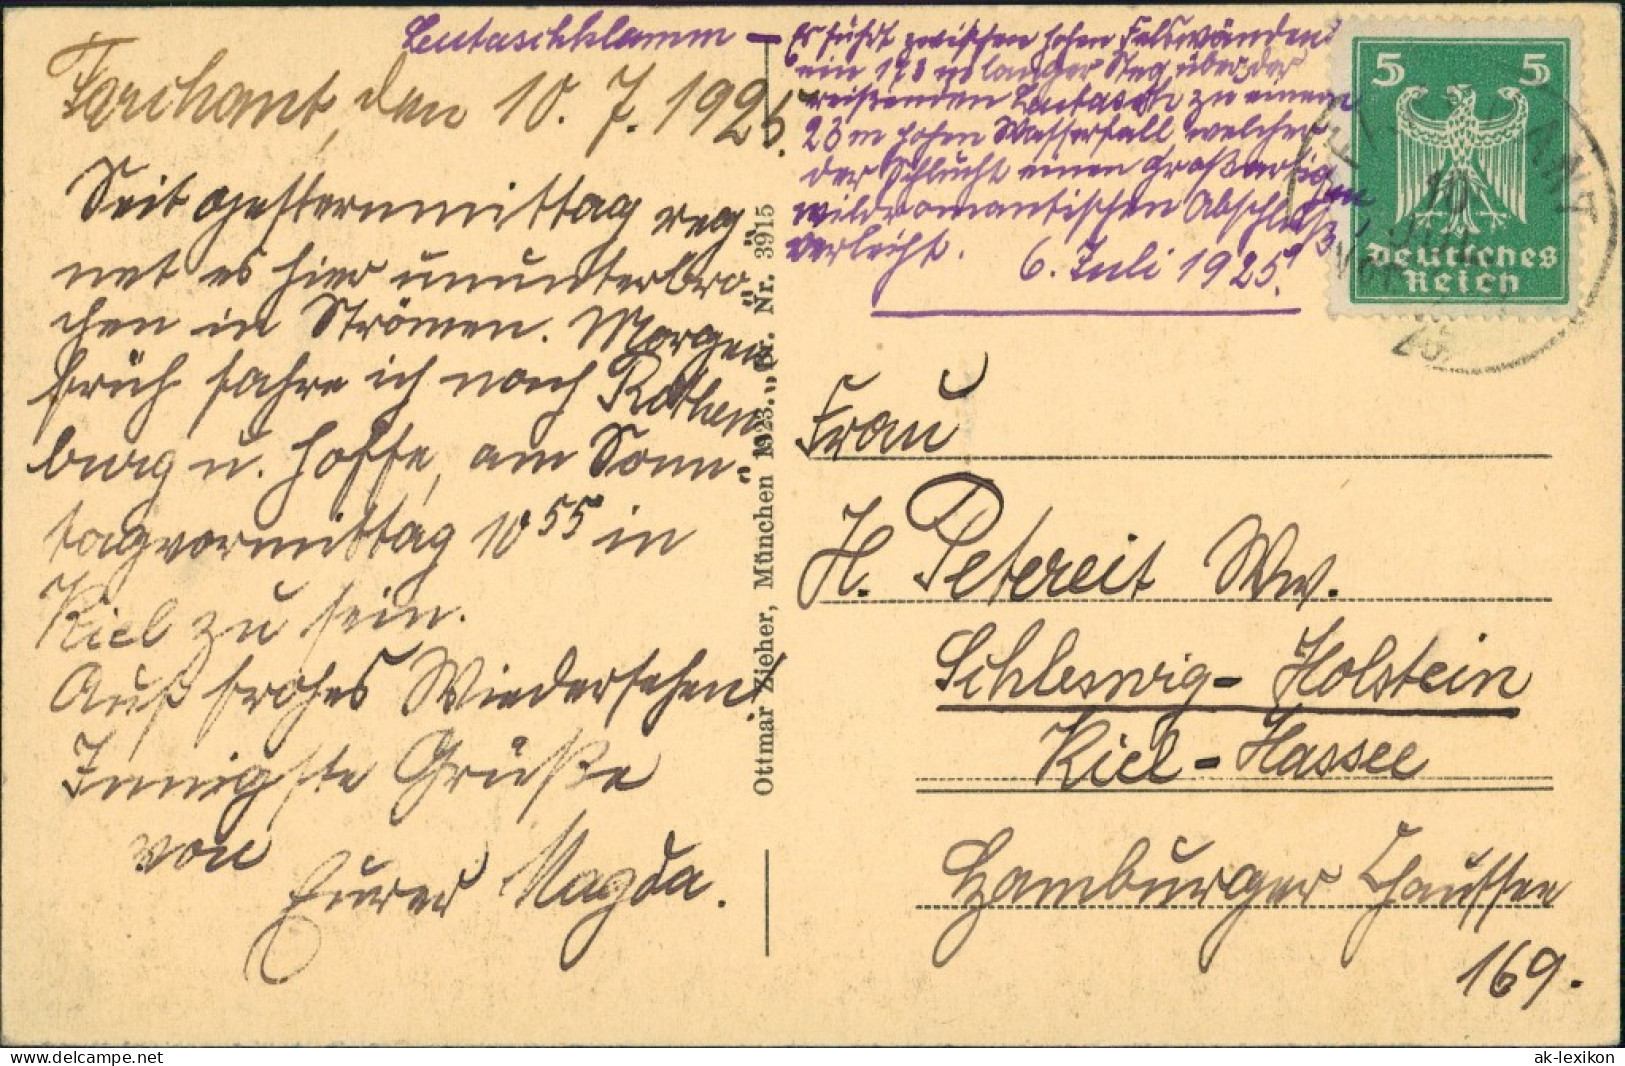 Leutaschklamm —
Farchant, den 10. 7. 1925.
Seit gesternmittag reg
net es hier ununterbro-
chen in Strömen. Morgen
früh fahre ich nach Rothen
burg u. hoffe, am Sonn-
tagvormittag 10 55 in
Kiel zu sein.
Auf frohes Wiedersehen!
Innigste Grüße
von
Eurer Magda.
Es führt zwischen hohen Felswänden
ein 173 m langer Steg über der
reißenden Leutasch zu einem
23 m hohen Wasserfall welcher
der Schlucht einen großartigen
wildromantischen Abschluß
verleiht.
6. Juli 1925.
Ottmar Zieher, München 1923. Nr. 3915
5 5
Deutsches
Reich
10
25
Frau
H. Petereit Ww.
Schleswig-Holstein
Kiel-Hassee
Hamburger Chaussee
169.
www.delcampe.net
ak-lexikon